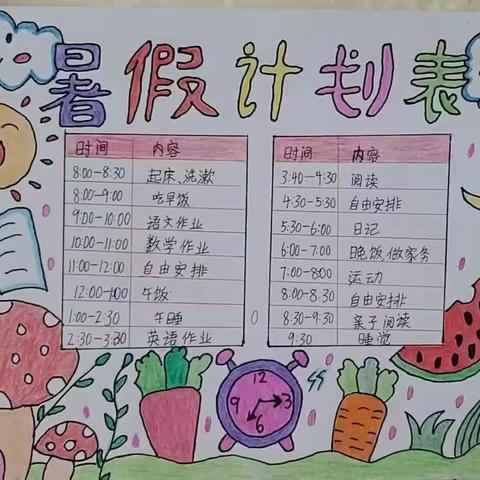 暑假计划表
时间 内容
8:00-8:30 起床、洗漱
8:00-9:00 吃早饭
9:00-10:00 语文作业
10:00-11:00 数学作业
11:00-12:00 自由安排
12:00-1:00 午饭
1:00-2:30 午睡
2:30-3:30 英语作业
时间 内容
3:40-4:30 阅读
4:30-5:30 自由安排
5:30-6:00 日记
6:00-7:00 晚饭、做家务
7:00-8:00 运动
8:00-8:30 自由安排
8:30-9:30 亲子阅读
9:30 睡觉
12
9 3
6